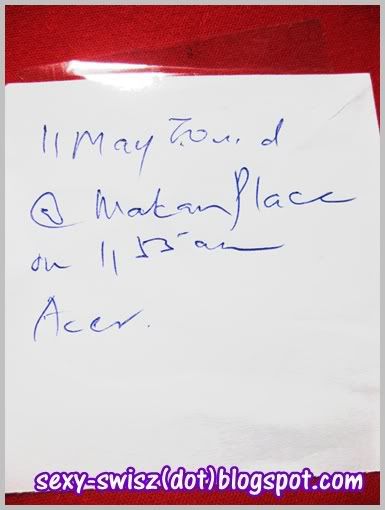 11 May Found
@ Makan Place
on 11 55 am
Acer.
sexy-swisz(dot)blogspot.com